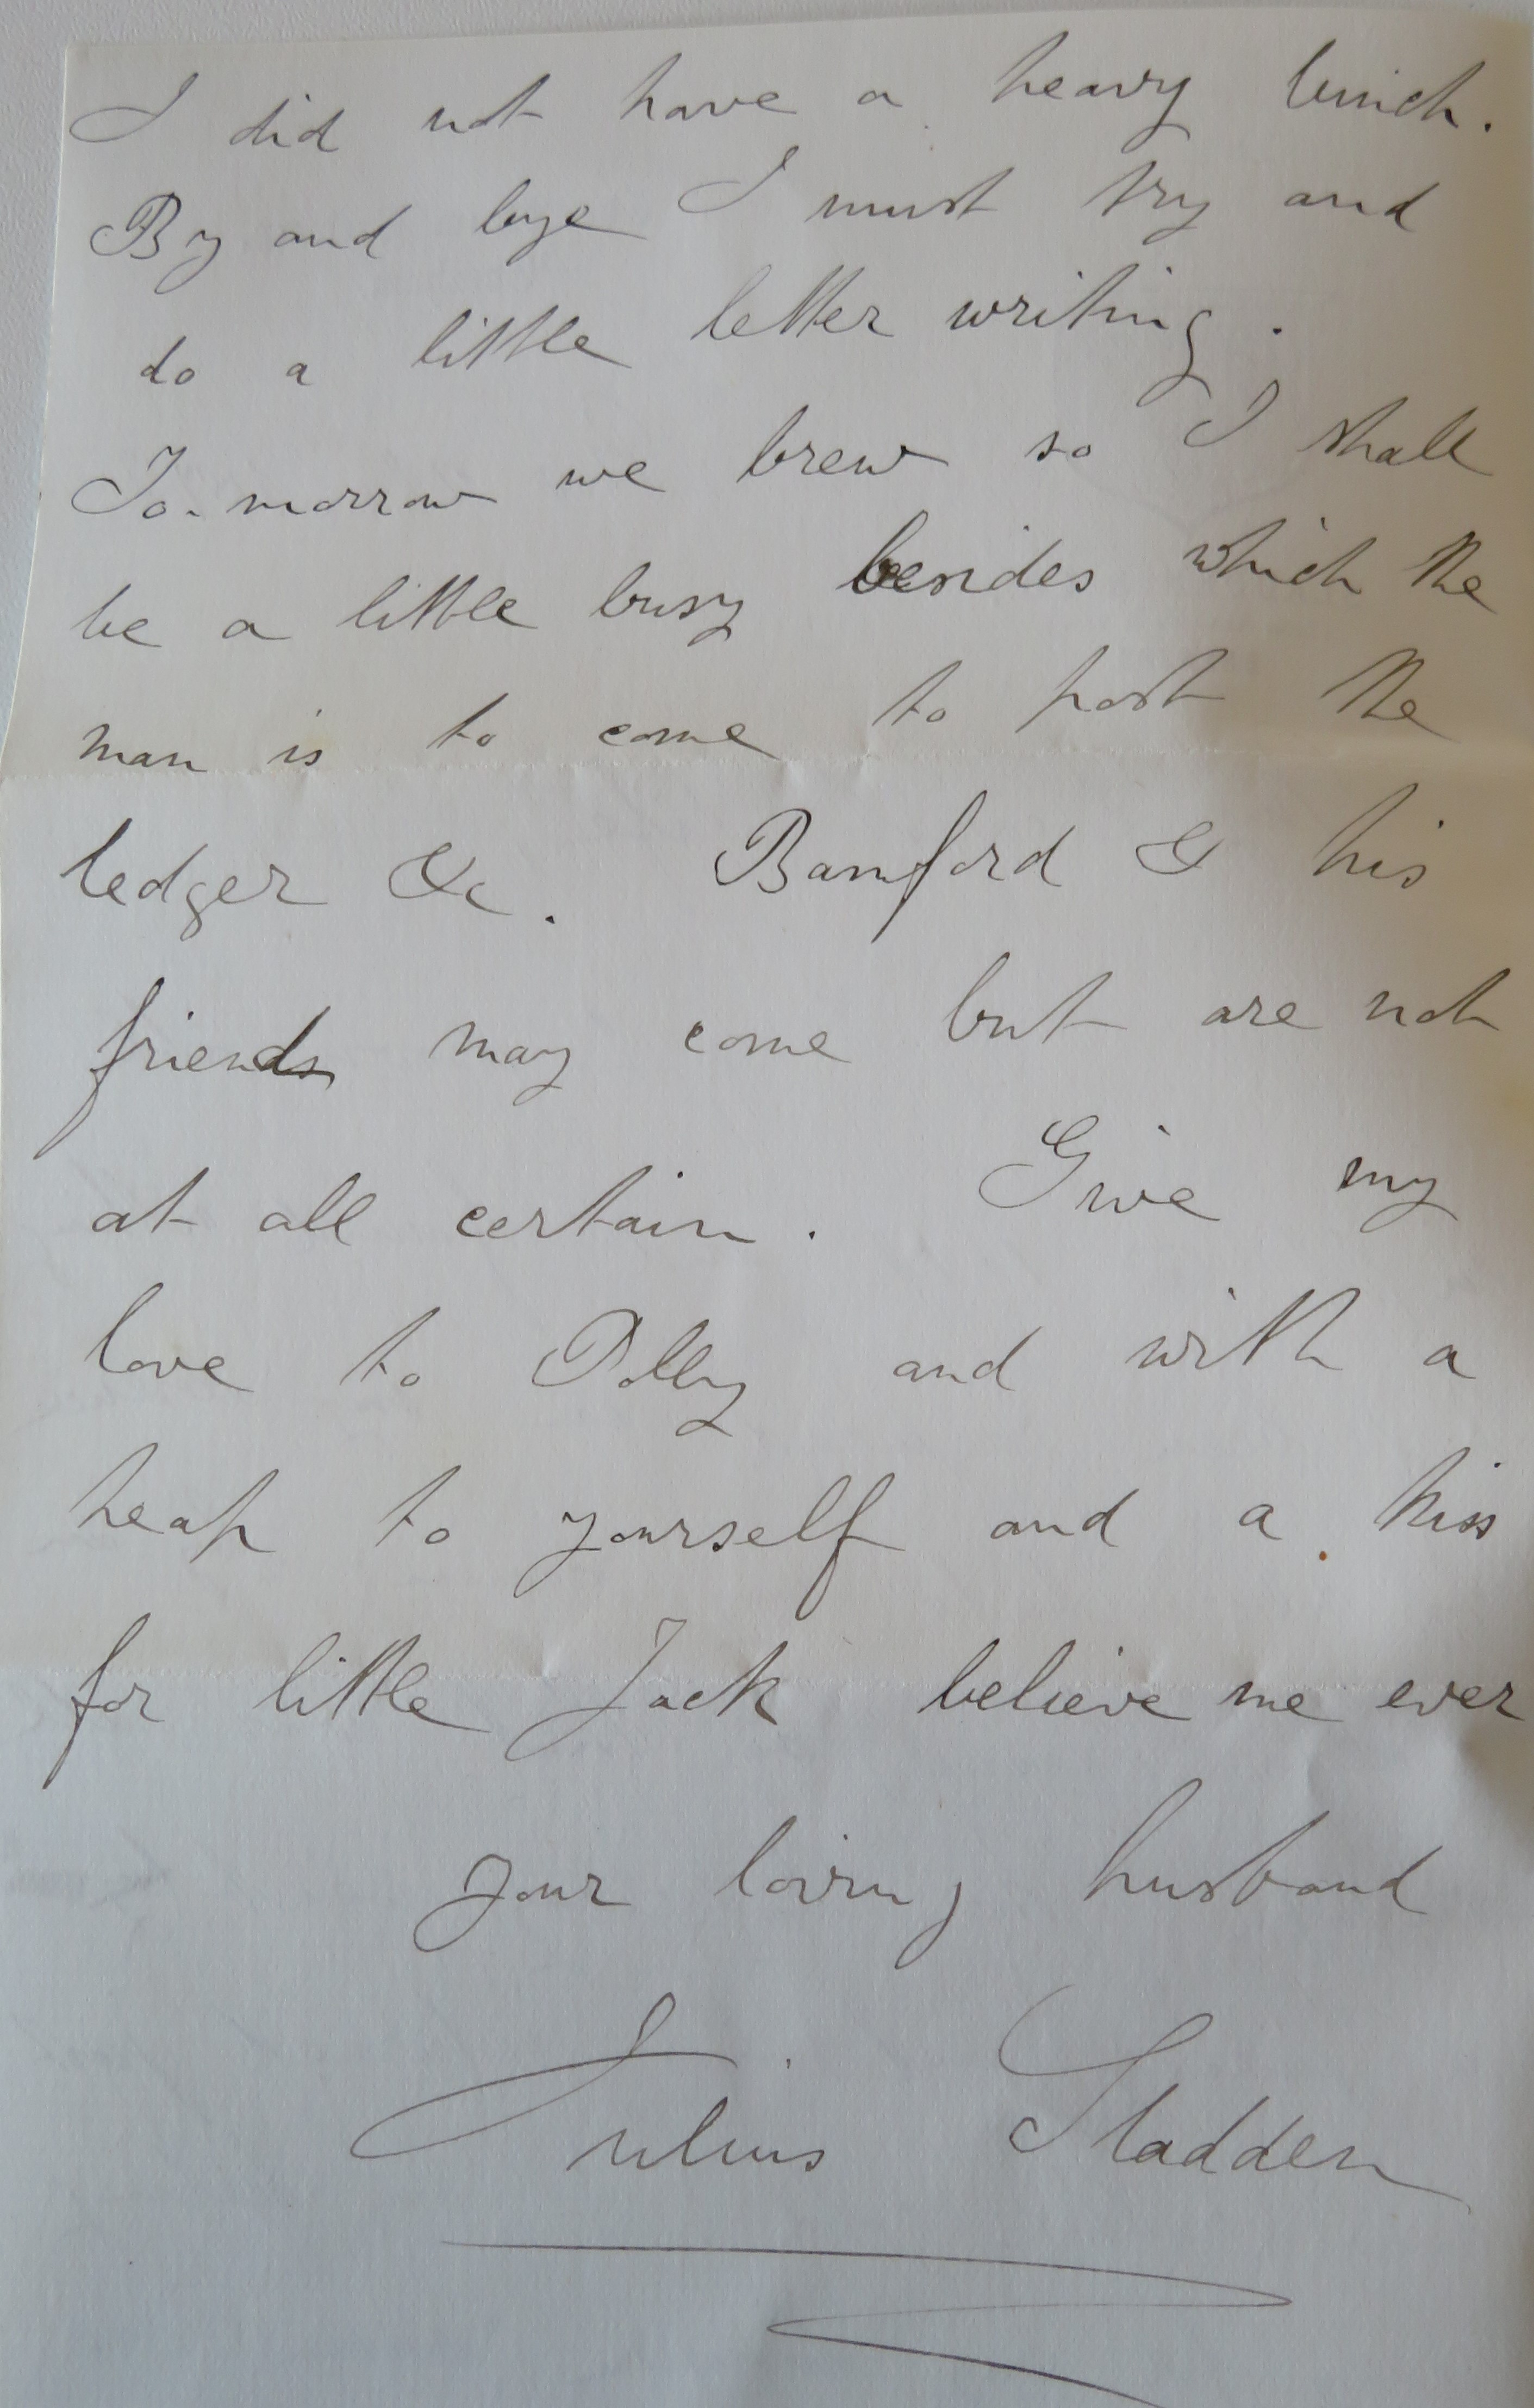 I did not have a heavy lunch.
By and bye I must try and
do a little letter writing.
To-morrow we brew so I shall
be a little busy besides which the
man is to come to post the
ledger &c. Bamford & his
friends may come but are not
at all certain. Give my
love to Polly and with a
heap to yourself and a kiss
for little Jack believe me ever
your loving husband
Julius Sladden